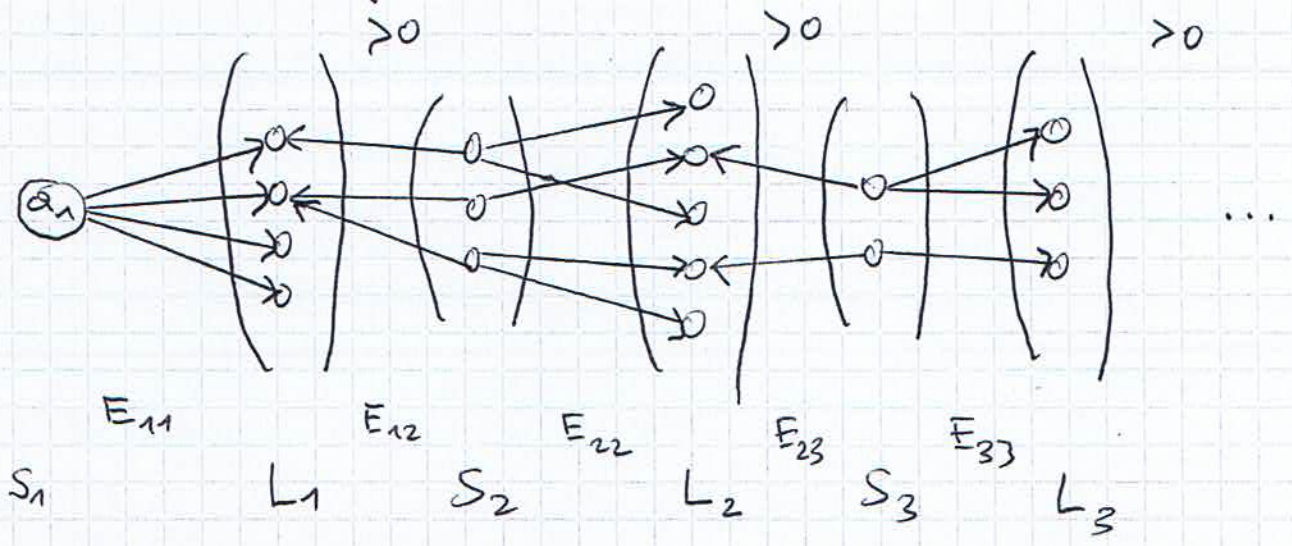 >0 >0 >0
a₁
...
E₁₁ E₁₂ E₂₂ E₂₃ E₃₃
S₁ L₁ S₂ L₂ S₃ L₃